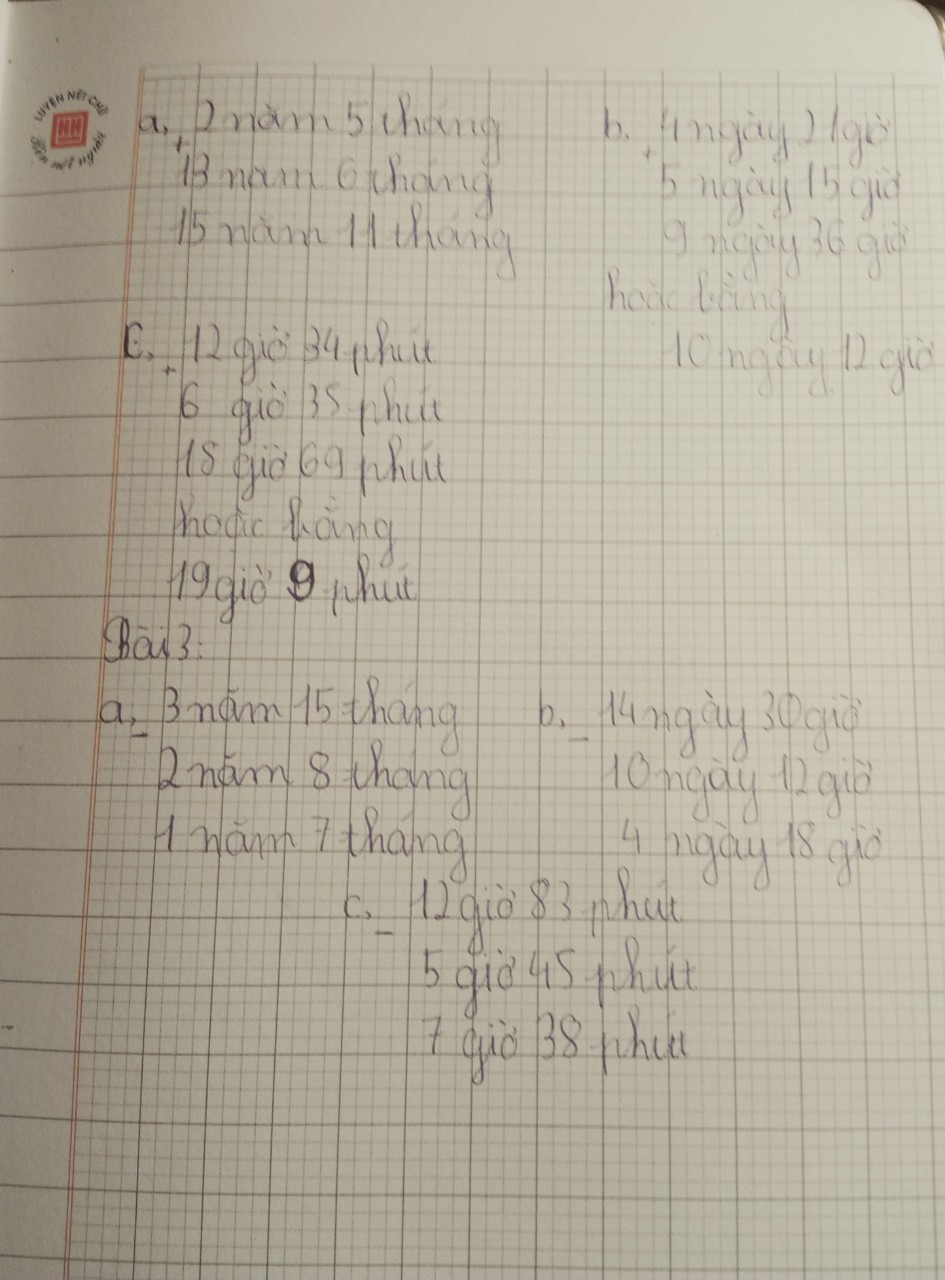 LUYỆN NÉT CHỮ
HH
Rèn nết người
a, 2 năm 5 tháng
+
13 năm 6 tháng
15 năm 11 tháng
b. 4 ngày 21 giờ
+
5 ngày 15 giờ
9 ngày 36 giờ
hoặc bằng
10 ngày 12 giờ
c. 12 giờ 34 phút
+
6 giờ 35 phút
18 giờ 69 phút
hoặc bằng
19 giờ 9 phút
Bài 3:
a, 3 năm 15 tháng
-
2 năm 8 tháng
1 năm 7 tháng
b. 14 ngày 30 giờ
-
10 ngày 12 giờ
4 ngày 18 giờ
c. 12 giờ 83 phút
-
5 giờ 45 phút
7 giờ 38 phút